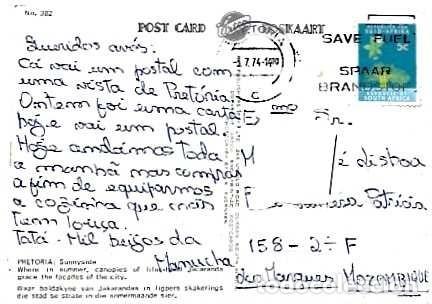 No. 382
POST CARD
POSKAART
SAVE FUEL
SPAAR
BRANDSTOF
7.74
5c
SOUTH AFRICA
Queridos avós:
Cá vai um postal com
uma vista de Pretória.
Ontem foi uma carta
hoje vai um postal.
Hoje andámos toda
a manhã nas compras
a fim de equiparmos
a cozinha que
tem louça.
Tatá. Mil beijos da
Manucha
Emo Sr.
M é disboa
Patrícia
158-2º F
Marques MOZAMBIQUE
PRETORIA: Sunnyside
Where in summer, canopies of Jacaranda
grace the facades of the city.
Waar baldakyne van Jakarandas in ligpers skakerings
die stad se strate in die somermaande sier.